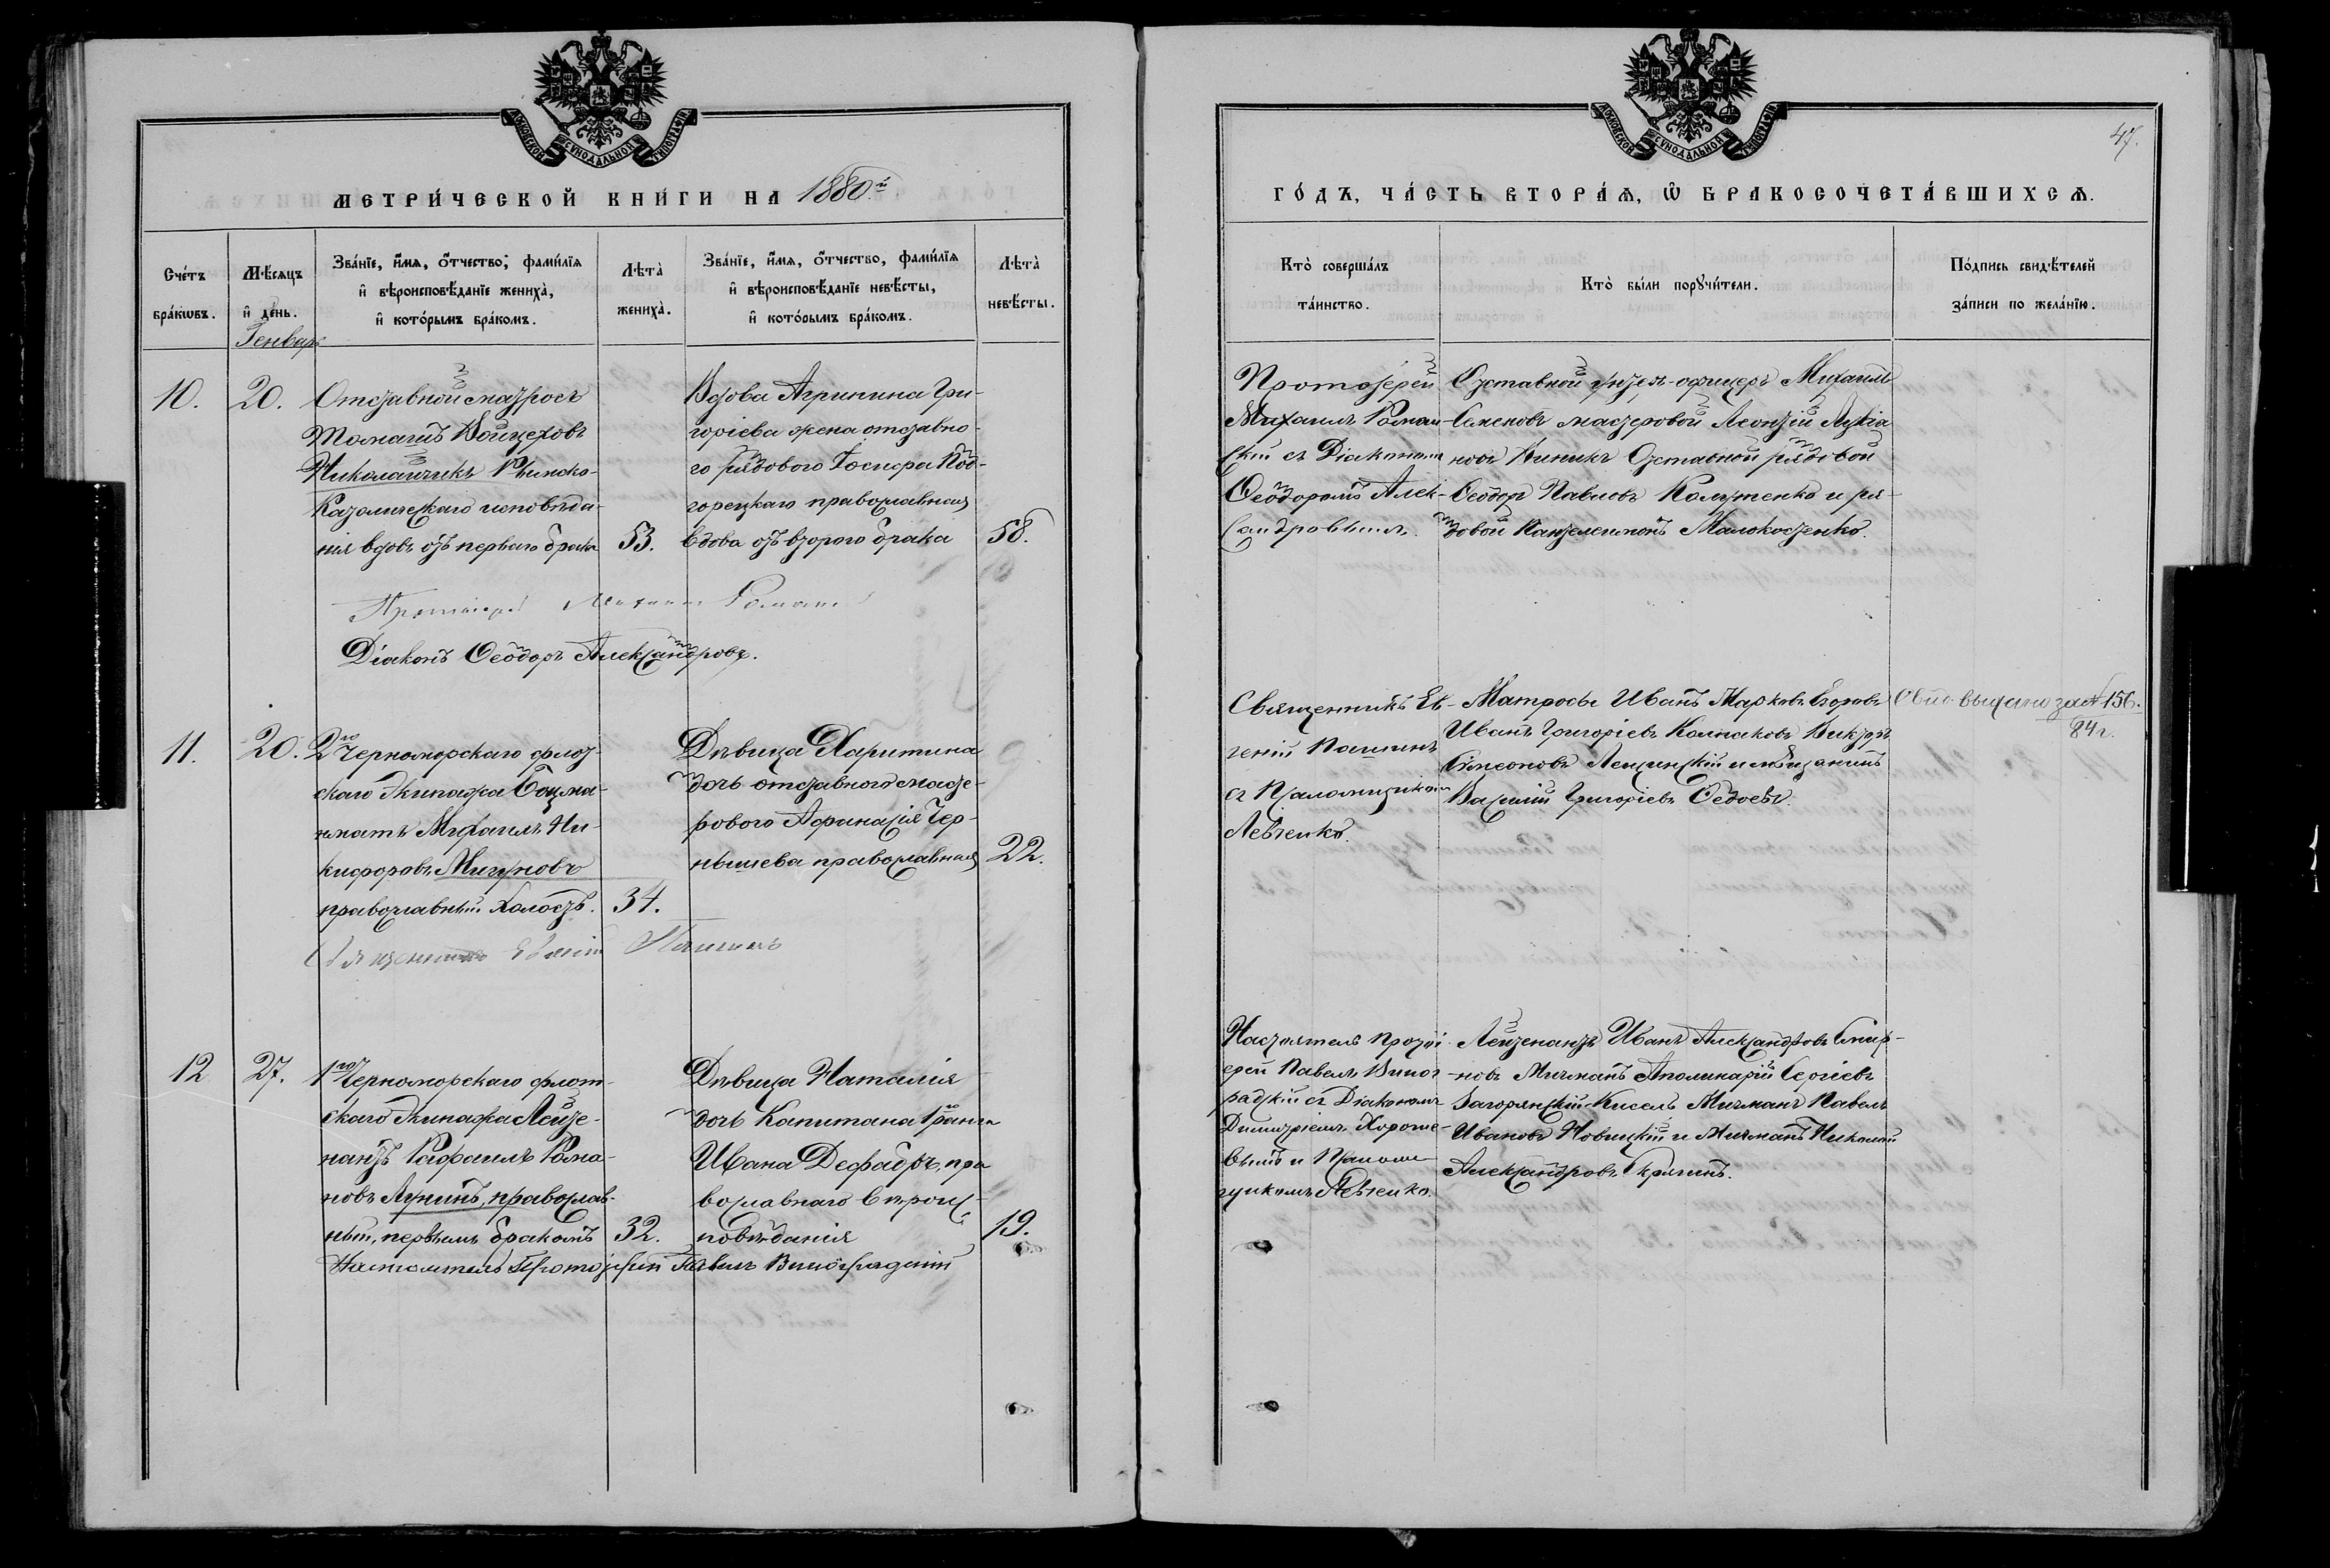 МОСКОВСКОЙ СѴНОДАЛЬНОЙ ТИПОГРАФІИ
МЕТРИ́ЧЕСКОЙ КНИ́ГИ НА 1880й
Сче́тъ бра́кѡвъ.
Мѣ́сяцъ и҆ де́нь.
Зва́нїе, и҆́мя, ѻ҆́тчество, фами́лїя
и҆ вѣроисповѣ́данїе жениха̀,
и҆ кото́рымъ бра́комъ.
Лѣта̀ жениха̀.
Зва́нїе, и҆́мя, ѻ҆́тчество, фами́лїя
и҆ вѣроисповѣ́данїе невѣ́сты,
и҆ кото́рымъ бра́комъ.
Лѣта̀ невѣ́сты.
Генварь
10.
20.
Отставной матросъ
Томашъ Войцеховъ
Николайчикъ Римско-
Католическаго исповѣда-
нія вдовъ отъ перваго брака
53.
Вдова Агрипина Гри-
горіева жена отставно-
го рядового Іосифа Под-
горецкаго православная
вдова отъ второго брака
58.
Протоіерей Михаилъ Роман
Діаконъ Ѳеодоръ Александровъ.
11.
20.
2го Черноморскаго флот-
скаго Экипажа Боцма-
нматъ Михаилъ Ни-
кифоровъ Мигуновъ
православный Холостъ.
34.
Дѣвица Харитина
дочь отставного масте-
рового Афанасія Чер-
нышева православная
22.
Священникъ Евгеній Пашинъ
12
27.
1го Черноморскаго флот-
скаго Экипажа Лейте-
нантъ Рафаилъ Рома-
новъ Лунинъ, православ-
ный, первымъ бракомъ
32.
Дѣвица Наталія
дочь Капитана 1го ранга
Ивана Дефабръ, пра
вославнаго вѣроис-
повѣданія
19.
Настоятель Протоіерей Павелъ Виноградскій
МОСКОВСКОЙ СѴНОДАЛЬНОЙ ТИПОГРАФІИ
47.
ГО́ДЪ, ЧА́СТЬ ВТОРА́Я, Ѡ҆ БРАКОСОЧЕТА́ВШИХСЯ.
Кто̀ соверша́лъ
та́инство.
Кто̀ бы́ли порꙋчи́тели.
По́дпись свидѣ́телей
за́писи по жела́нїю.
Протоіерей
Михаилъ Роман-
скій съ Діакономъ
Ѳеодоромъ Алек-
сандровымъ.
Отставной унтеръ-офицеръ Михаилъ
Семеновъ мастеровой Леонтій Лукіа
новъ Виникъ Отставной рядовой
Ѳеодоръ Павловъ Колутенко и ря-
довой Пантелеимонъ Малокостенко.
Священникъ Ев-
геній Пашинъ
съ Псаломщикомъ
Левченко.
Матросы Иванъ Марковъ Егоровъ
Иванъ Григоріевъ Колпаковъ Викторъ
Симеоновъ Лещинскій и мѣщанинъ
Василій Григоріевъ Ѳедоевъ.
Свид. выдано за № 156.
84 г.
Настоятель Протоі
ерей Павелъ Виног
радскій съ Діакономъ
Димитріемъ Хороше-
вымъ и Псалом-
щикомъ Левченко.
Лейтенантъ Иванъ Александровъ Смир-
новъ Мичманъ Аполинарій Сергіевъ
Загорянскій-Кисель Мичманъ Павелъ
Ивановъ Новицкій и Мичманъ Николай
Александровъ Скрягинъ.